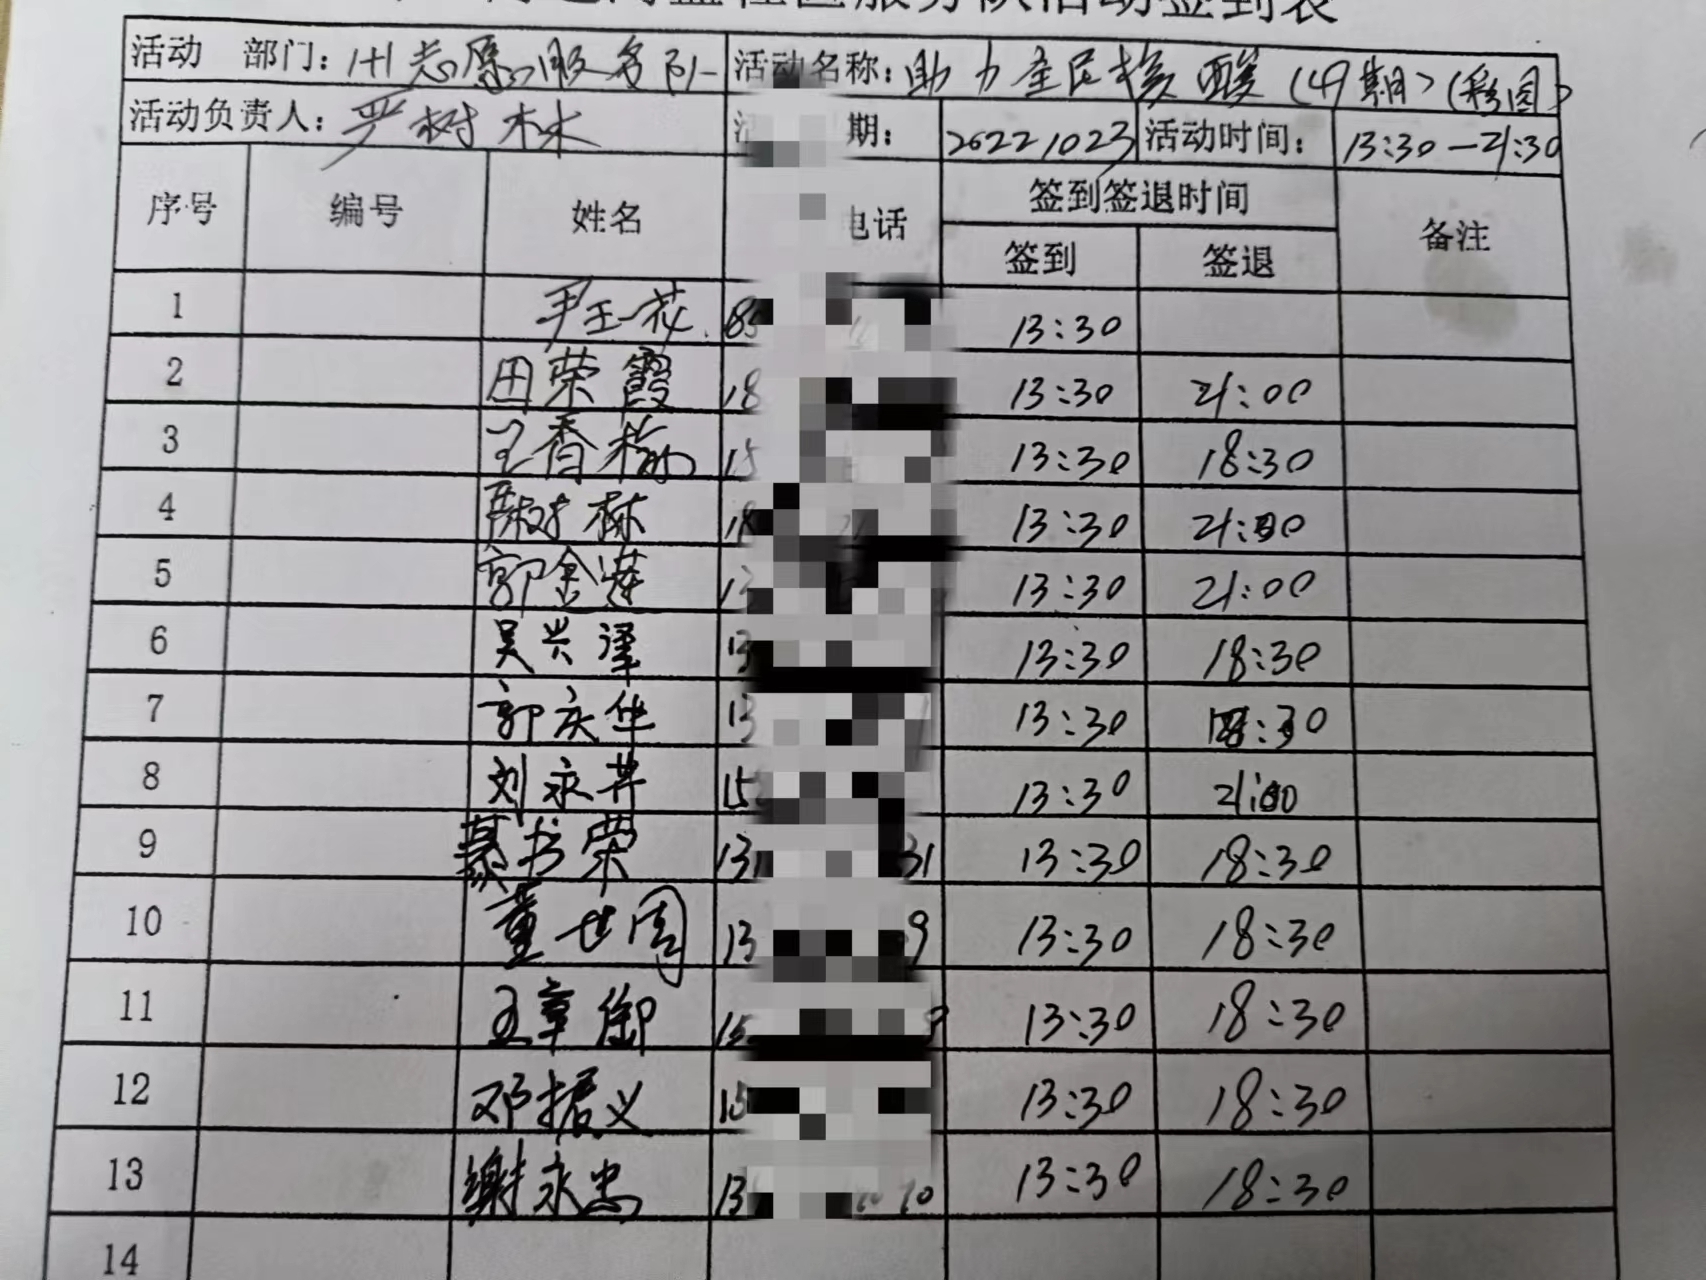 服务队活动签到表
活动 部门: 志愿服务队 活动名称: 助力全民核酸(49期)(彩园)
活动负责人: 严树林 期: 20221023 活动时间: 13:30-21:30
序号 编号 姓名 电话 签到签退时间 备注
签到 签退
1 13:30
2 田荣霞 18 13:30 21:00
3 王香梅 15 13:30 18:30
4 严树林 18 13:30 21:30
5 郭金莲 13 13:30 21:00
6 吴兴泽 13 13:30 18:30
7 郭庆华 13 13:30 :30
8 刘永芹 15 13:30 21:00
9 慕书荣 131 31 13:30 18:30
10 董世周 13 9 13:30 18:30
11 王章御 15 13:30 18:30
12 邓振义 15 13:30 18:30
13 谢永忠 13 70 13:30 18:30
14